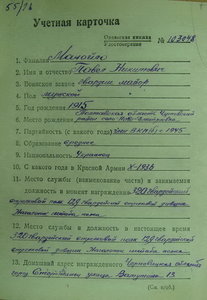 55/16
Учетная карточка
Орденская книжка
Удостоверение № 163048
1. Фамилия
2. Имя и отчество Павел Никитович
3. Воинское звание Гвардии майор
4. Пол мужской
5. Год рождения 1915
6. Место рождения Полтавская область
7. Партийность (с какого года) член ВКП(б) - 1945
8. Образование среднее
9. Национальность Украинец
10. С какого года в Красной Армии X-1936
11. Место службы (наименование части) и занимаемая
должность в момент награждения 320 гвардейский
стрелковый полк 129 гвардейской
стрелковой дивизии
Начальник штаба полка
12. Место службы и должность в настоящее время
320 гвардейский стрелковый полк 129 гвардейской
стрелковой дивизии
Начальник штаба полка
13. Домашний адрес награжденного Черновицкая область
город улица 13
(См. н/об.)